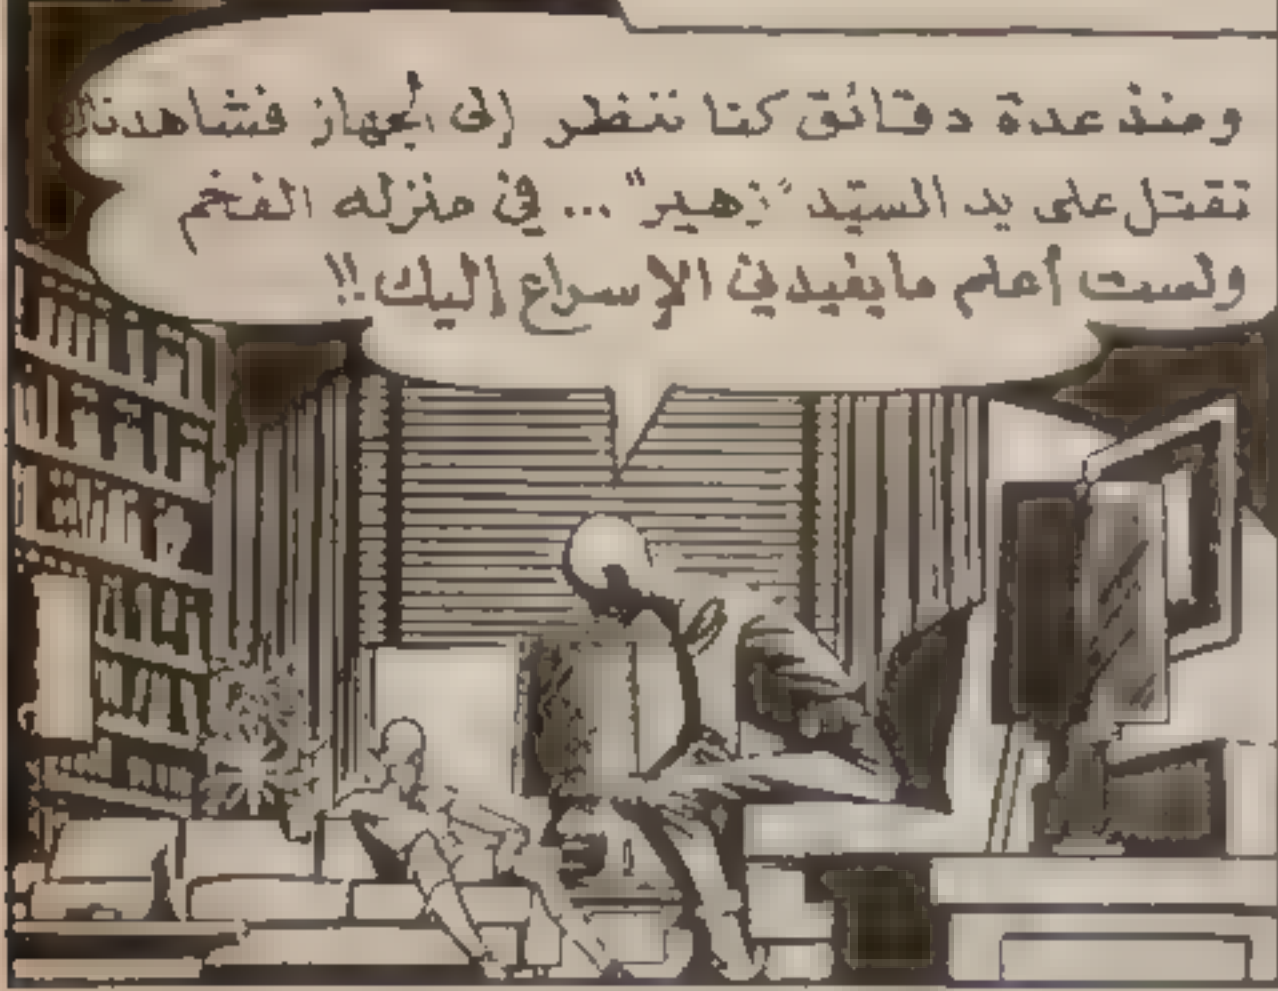 ومنذ عدة دقائق كنا ننظر إلى الجهاز فشاهدناك
تقتل على يد السيّد "زهير" ... في منزله الفخم
ولست أعلم ما يفيدني الإسراع إليك !!